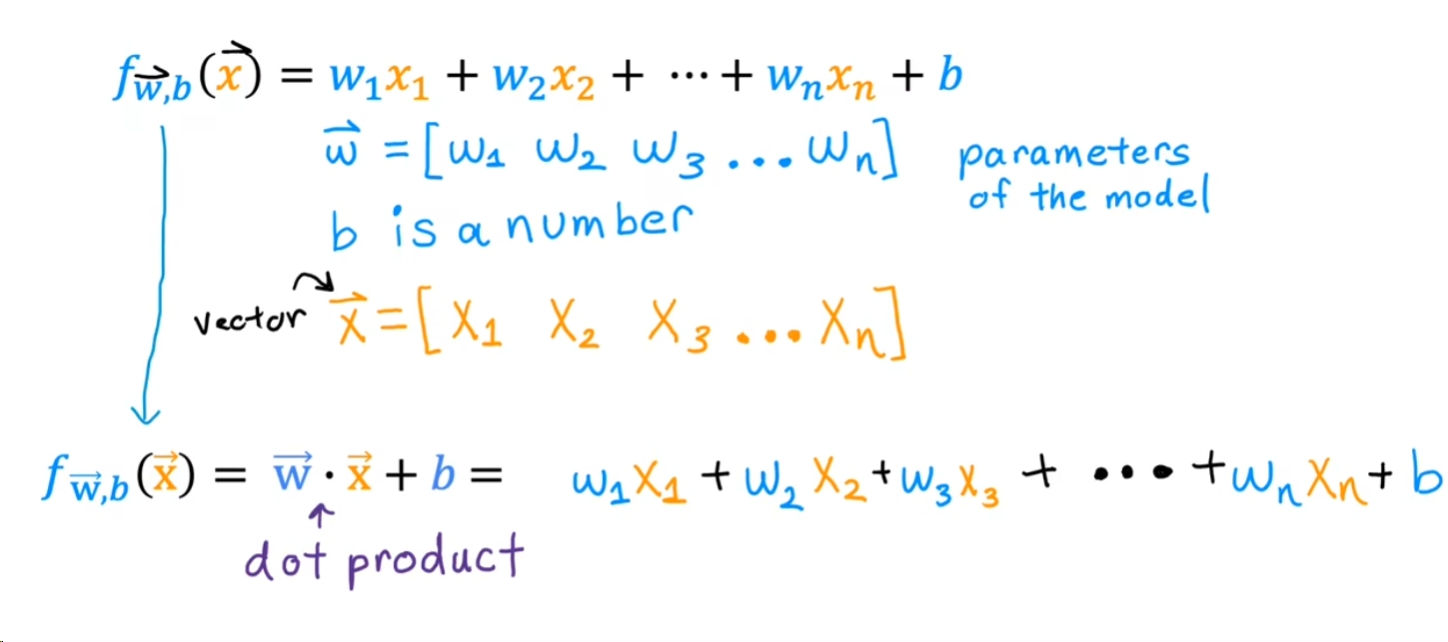 f_{\vec{w},b}(\vec{x}) = w_1x_1 + w_2x_2 + ⋯ + w_nx_n + b
\vec{w} = [w_1 w_2 w_3 ... w_n]
parameters
of the model
b is a number
vector \vec{x} = [x_1 x_2 x_3 ... x_n]
f_{\vec{w},b}(\vec{x}) = \vec{w} · \vec{x} + b = w_1x_1 + w_2x_2 + w_3x_3 + ... + w_nx_n + b
dot product